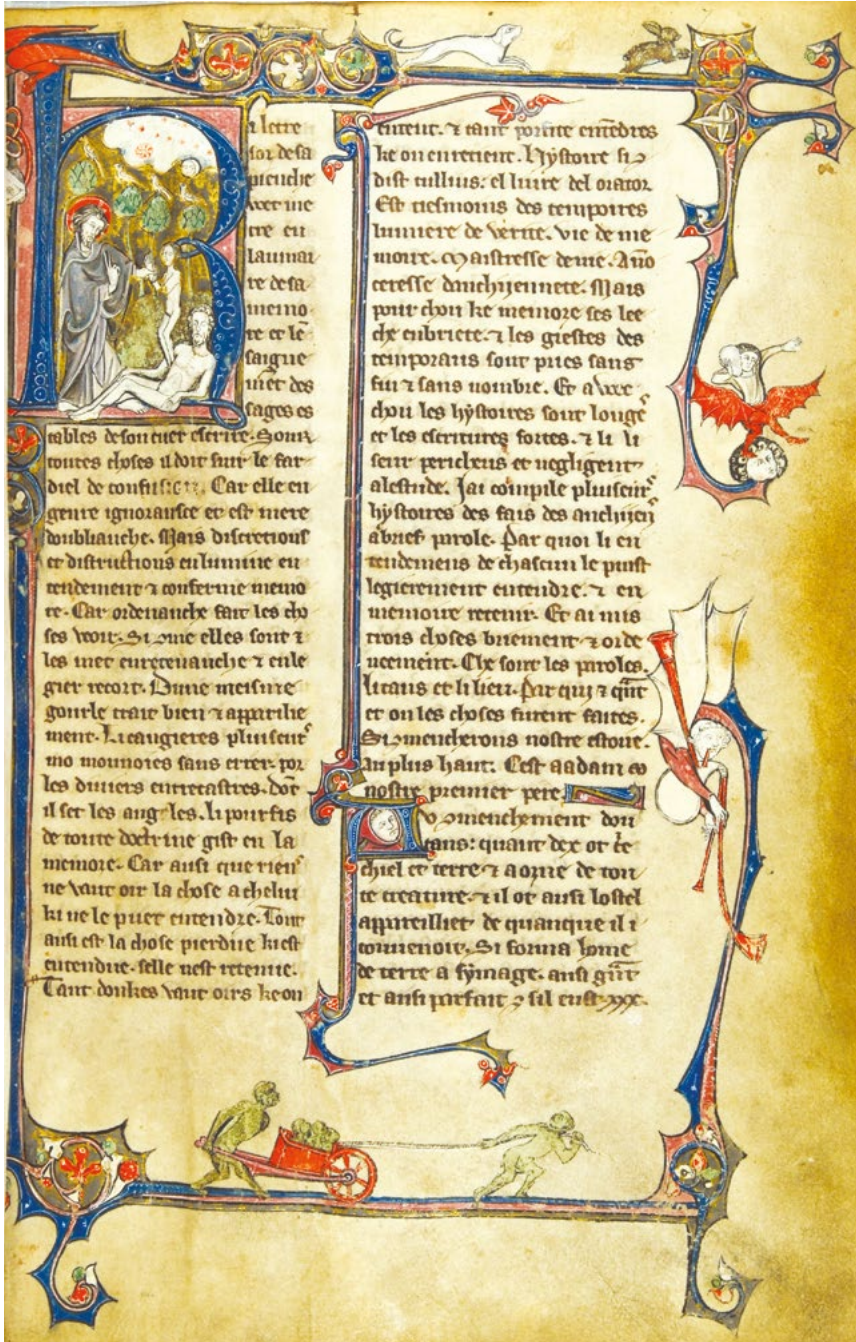 i letre
sor desa
pienche
wet me
tre en
laumai
re desa
memo
re et lē
saigne
mēt des
sages es
tables deson cuer escrire. Sour
toutes choses il doit fuir le far
diel de confusion. Car elle en
genre ignorausce et est mere
doubliauche. Mais discretions
et distructions enlumine en
tendement ⁊ conferme memo
re. Car ordenauche fait les cho
ses veoir. Si ꝯme elles sont ⁊
les met enretenauche ⁊ enle
gier recort. Dune meisme
gourle trait bien ⁊ apparilie
ment. Li caugieres pluiseurs
mo mounoies sans errer. por
les diuiers entrecastres. dōt
il set les angles. li pourfis
de toute doctrine gist en la
memore. Car ausi que riens
ne vaut oir la chose a chelui
ki ne le puet entendre. Tout
ausi est la chose pierdue ki est
entendue. selle nest retenue.
Tant donkes vaut oirs ke on
entent. ⁊ tant porfite entēdres
ke on en retient. Hystoire si ꝯ
dist tullius. el liure del orator
Est tiesmoins des tempoires
lumiere de verite. vie de me
moire. Maistresse de uie. Āno
ceresse danchijennete. Mais
pour chou ke memore ses lee
che en briete. ⁊ les giestes des
temporaus sont pries sans
fin ⁊ sans nombre. Et a wec
chou les hystoires sont longes
et les escritures fortes. ⁊ li li
seur pericheus et negligent
alestude. Jai compile pluiseurs
hystoires des fais des anchijens
a brief parole. Par quoi li en
tendemens de chascun le puist
legierement entendre. ⁊ en
memoire retenir. Et ai mis
trois choses briement ⁊ orde
neement. Che sont les paroles.
li tans et li lieu. Par qui ⁊ qūt
et ou les choses furent faites.
Si ꝯmencherons nostre estoire.
Au plus haut. Cest a adam
nostre premier pere.
v ꝯmenchement dou
tans: quant dex ot fe
chiel et terre ⁊ aorne de tou
te creature. ⁊ il ot ausi lostel
appareilliet de quanque il i
couuenoit. Si forma home
de terre a symage. ausi gūt
et ausi parfait ꝯ sil eust xxx.